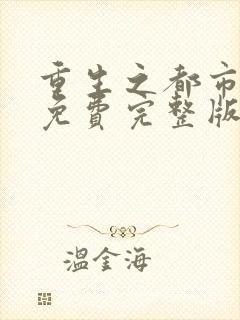 重生之都市
免費完整版
溫金海